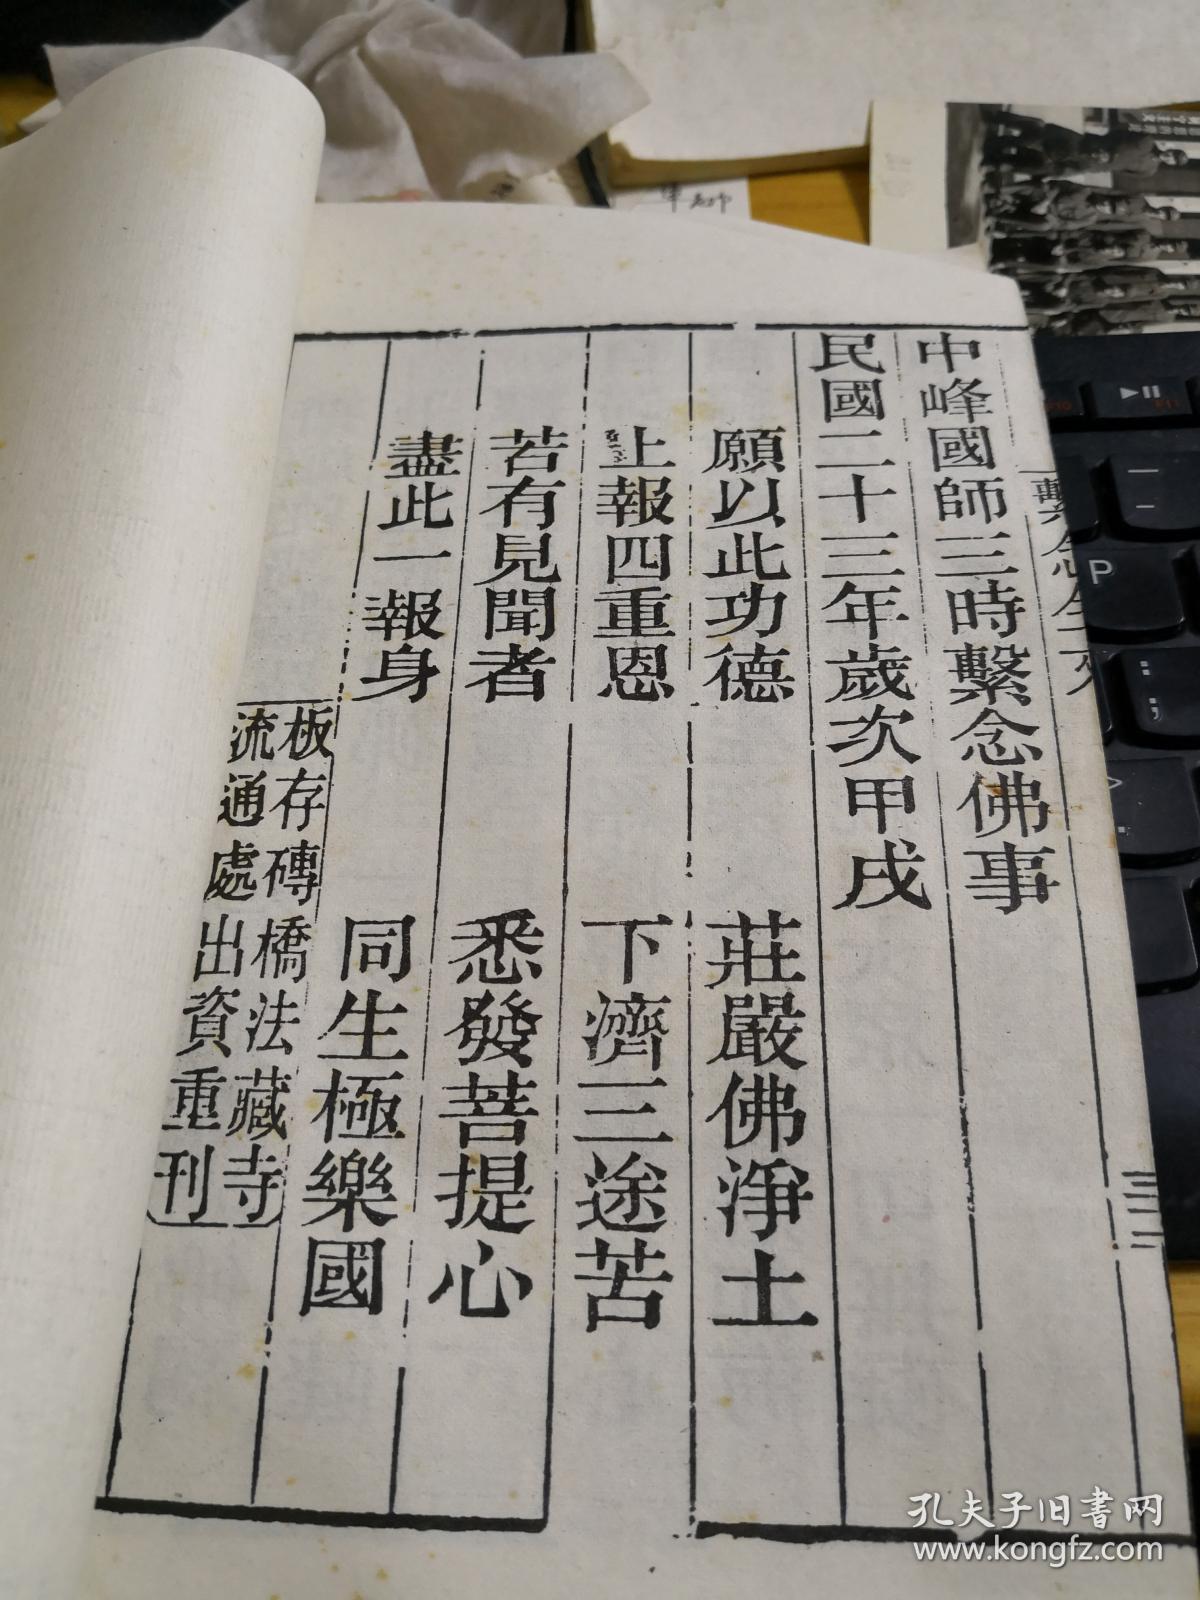 中峰國師三時繫念佛事
民國二十三年歲次甲戌
願以此功德 莊嚴佛淨土
上報四重恩 下濟三途苦
若有見聞者 悉發菩提心
盡此一報身 同生極樂國
板存磚橋法藏寺
流通處出資重刊
三三
P
孔夫子旧書网
www.kongfz.com